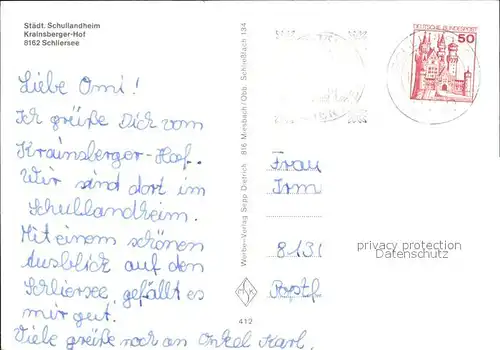 Städt. Schullandheim
Krainsberger-Hof
8162 Schliersee
Liebe Omi!
Ich grüße Dich vom
Krainsberger-Hof.
Wir sind dort im
Schullandheim.
Mit einem schönen
Ausblick auf den
Schliersee, gefällt es
mir gut.
Viele grüße noch an Onkel Karl.
Werbe-Verlag Sepp Dietrich 816 Miesbach/Obb. Schließfach 134
412
DEUTSCHE BUNDESPOST
50
Frau
Irm
8131
Postf
privacy protection
Datenschutz